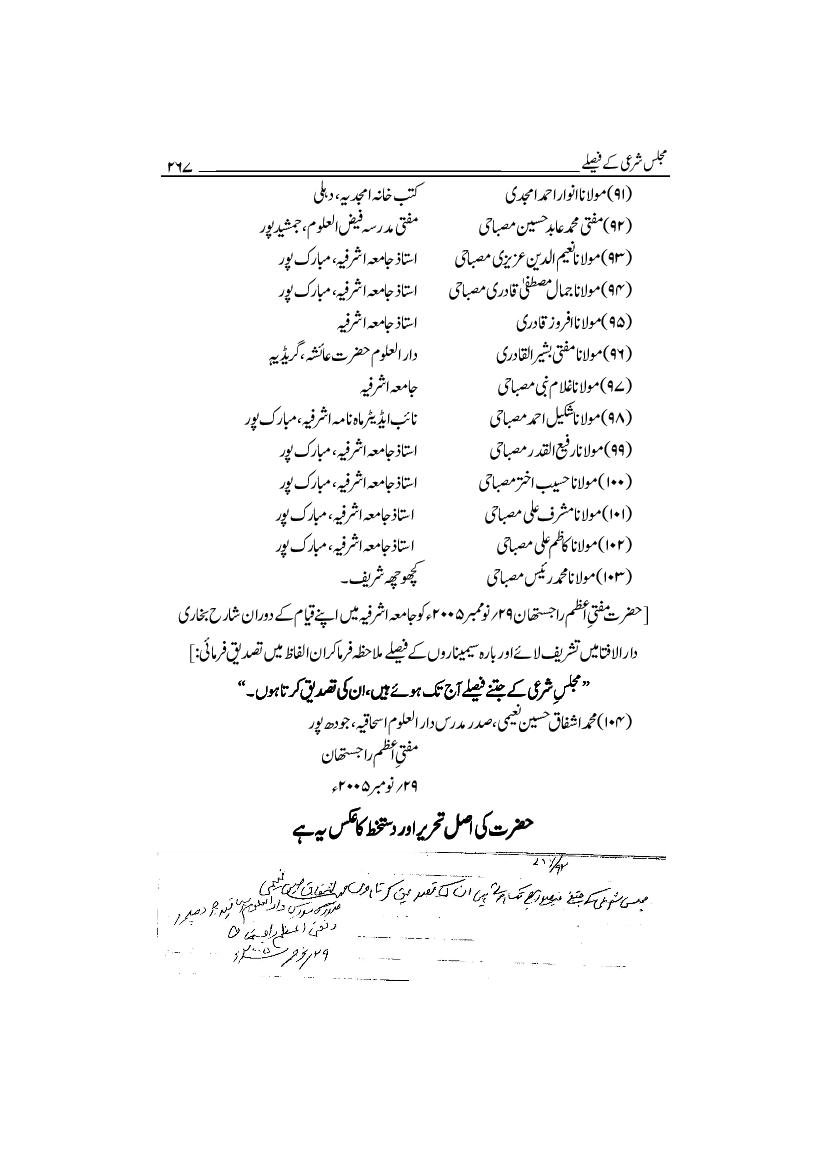 مجلس شرعی کے فیصلے ۲۶۷
(۹۱) مولانا انوار احمد امجدی کتب خانہ امجدیہ، دہلی
(۹۲) مفتی محمد عابد حسین مصباحی مفتی مدرسہ فیض العلوم، جمشید پور
(۹۳) مولانا نعیم الدین عزیزی مصباحی استاذ جامعہ اشرفیہ، مبارک پور
(۹۴) مولانا جمال مصطفیٰ قادری مصباحی استاذ جامعہ اشرفیہ، مبارک پور
(۹۵) مولانا افروز قادری استاذ جامعہ اشرفیہ
(۹۶) مولانا مفتی بشیر القادری دار العلوم حضرت عائشہ، گریڈیہہ
(۹۷) مولانا غلام نبی مصباحی جامعہ اشرفیہ
(۹۸) مولانا شکیل احمد مصباحی نائب ایڈیٹر ماہ نامہ اشرفیہ، مبارک پور
(۹۹) مولانا رفیع القدر مصباحی استاذ جامعہ اشرفیہ، مبارک پور
(۱۰۰) مولانا حسیب اختر مصباحی استاذ جامعہ اشرفیہ، مبارک پور
(۱۰۱) مولانا مشرف علی مصباحی استاذ جامعہ اشرفیہ، مبارک پور
(۱۰۲) مولانا کاظم علی مصباحی استاذ جامعہ اشرفیہ، مبارک پور
(۱۰۳) مولانا محمد رئیس مصباحی کچھوچھہ شریف۔
[حضرت مفتیِ اعظم راجستھان ۲۹؍ نومبر ۲۰۰۵ء کو جامعہ اشرفیہ میں اپنے قیام کے دوران شارح بخاری
دار الافتا میں تشریف لائے اور بارہ سیمیناروں کے فیصلے ملاحظہ فرما کر ان الفاظ میں تصدیق فرمائی:]
”مجلسِ شرعی کے جتنے فیصلے آج تک ہوئے ہیں، ان کی تصدیق کرتا ہوں۔“
(۱۰۴) محمد اشفاق حسین نعیمی، صدر مدرس دار العلوم اسحاقیہ، جودھ پور
مفتیِ اعظم راجستھان
۲۹؍ نومبر ۲۰۰۵ء
حضرت کی اصل تحریر اور دستخط کا عکس یہ ہے
۷۸۶/۹۲
مجلس شرعی کے جتنے فیصلے آج تک ہوئے ہیں ان کی تصدیق کرتا ہوں محمد اشفاق حسین نعیمی
صدر مدرس دار العلوم اسحاقیہ جودھپور
مفتی اعظم راجستھان
۲۹؍ نومبر ۲۰۰۵ء